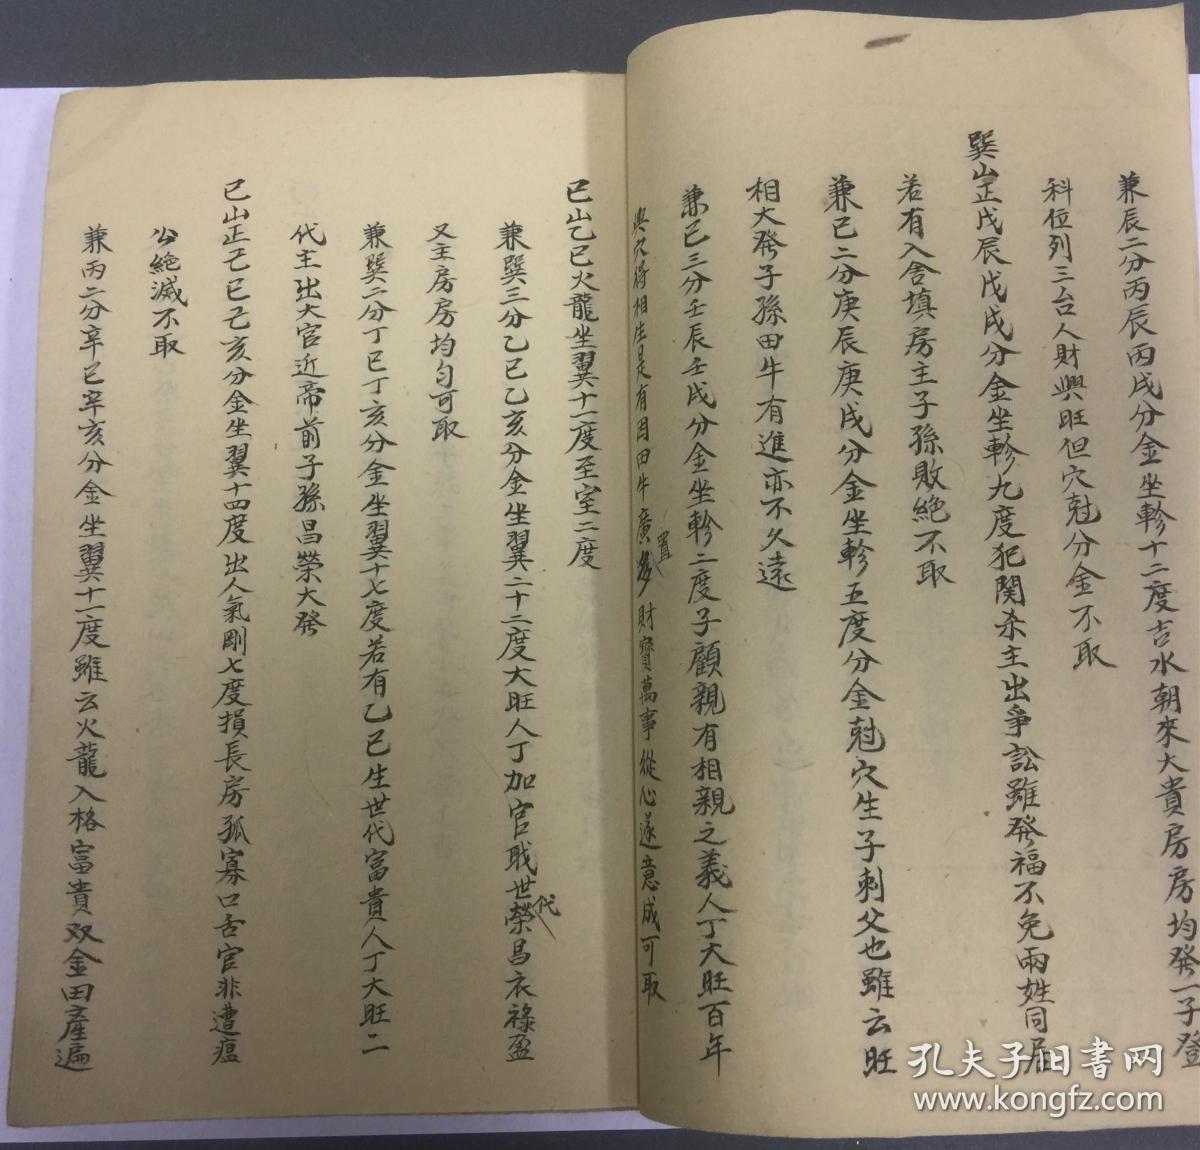 兼辰二分丙辰丙戌分金坐軫十二度吉水朝來大貴房房均發一子登
科位列三台人財興旺但穴尅分金不取
巽山正戊辰戊戌分金坐軫九度犯関杀主出爭訟雖發福不免兩姓同居
若有入舍填房主子孫敗絕不取
兼巳二分庚辰庚戌分金坐軫五度分金尅穴生子刺父也雖云旺
相大發子孫田牛有進亦不久遠
兼巳三分壬辰壬戌分金坐軫二度子顧親有相親之義人丁大旺百年
與穴得相生是有因田牛廣置多財寶萬事從心遂意成可取
巳山乙巳火龍坐翼十一度至室二度
兼巽三分乙巳乙亥分金坐翼二十二度大旺人丁加官戝世代榮昌衣祿盈
又主房房均匀可取
兼巽二分丁巳丁亥分金坐翼十七度若有乙巳生世代富貴人丁大旺二
代主出大官近帝前子孫昌榮大發
巳山正己巳己亥分金坐翼十四度出人氣剛七度損長房孤寡口舌官非遭瘟
公絕滅不取
兼丙二分辛巳辛亥分金坐翼十一度雖云火龍入格富貴双金田產遍
孔夫子旧书网
www.kongfz.com